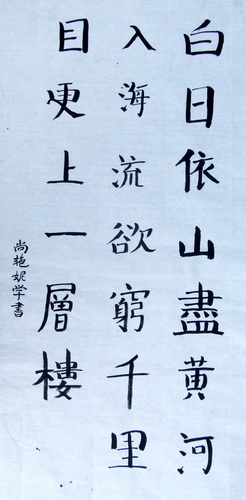 白日依山盡黄河
入海流欲窮千里
目更上一層樓
尚艳妮学書